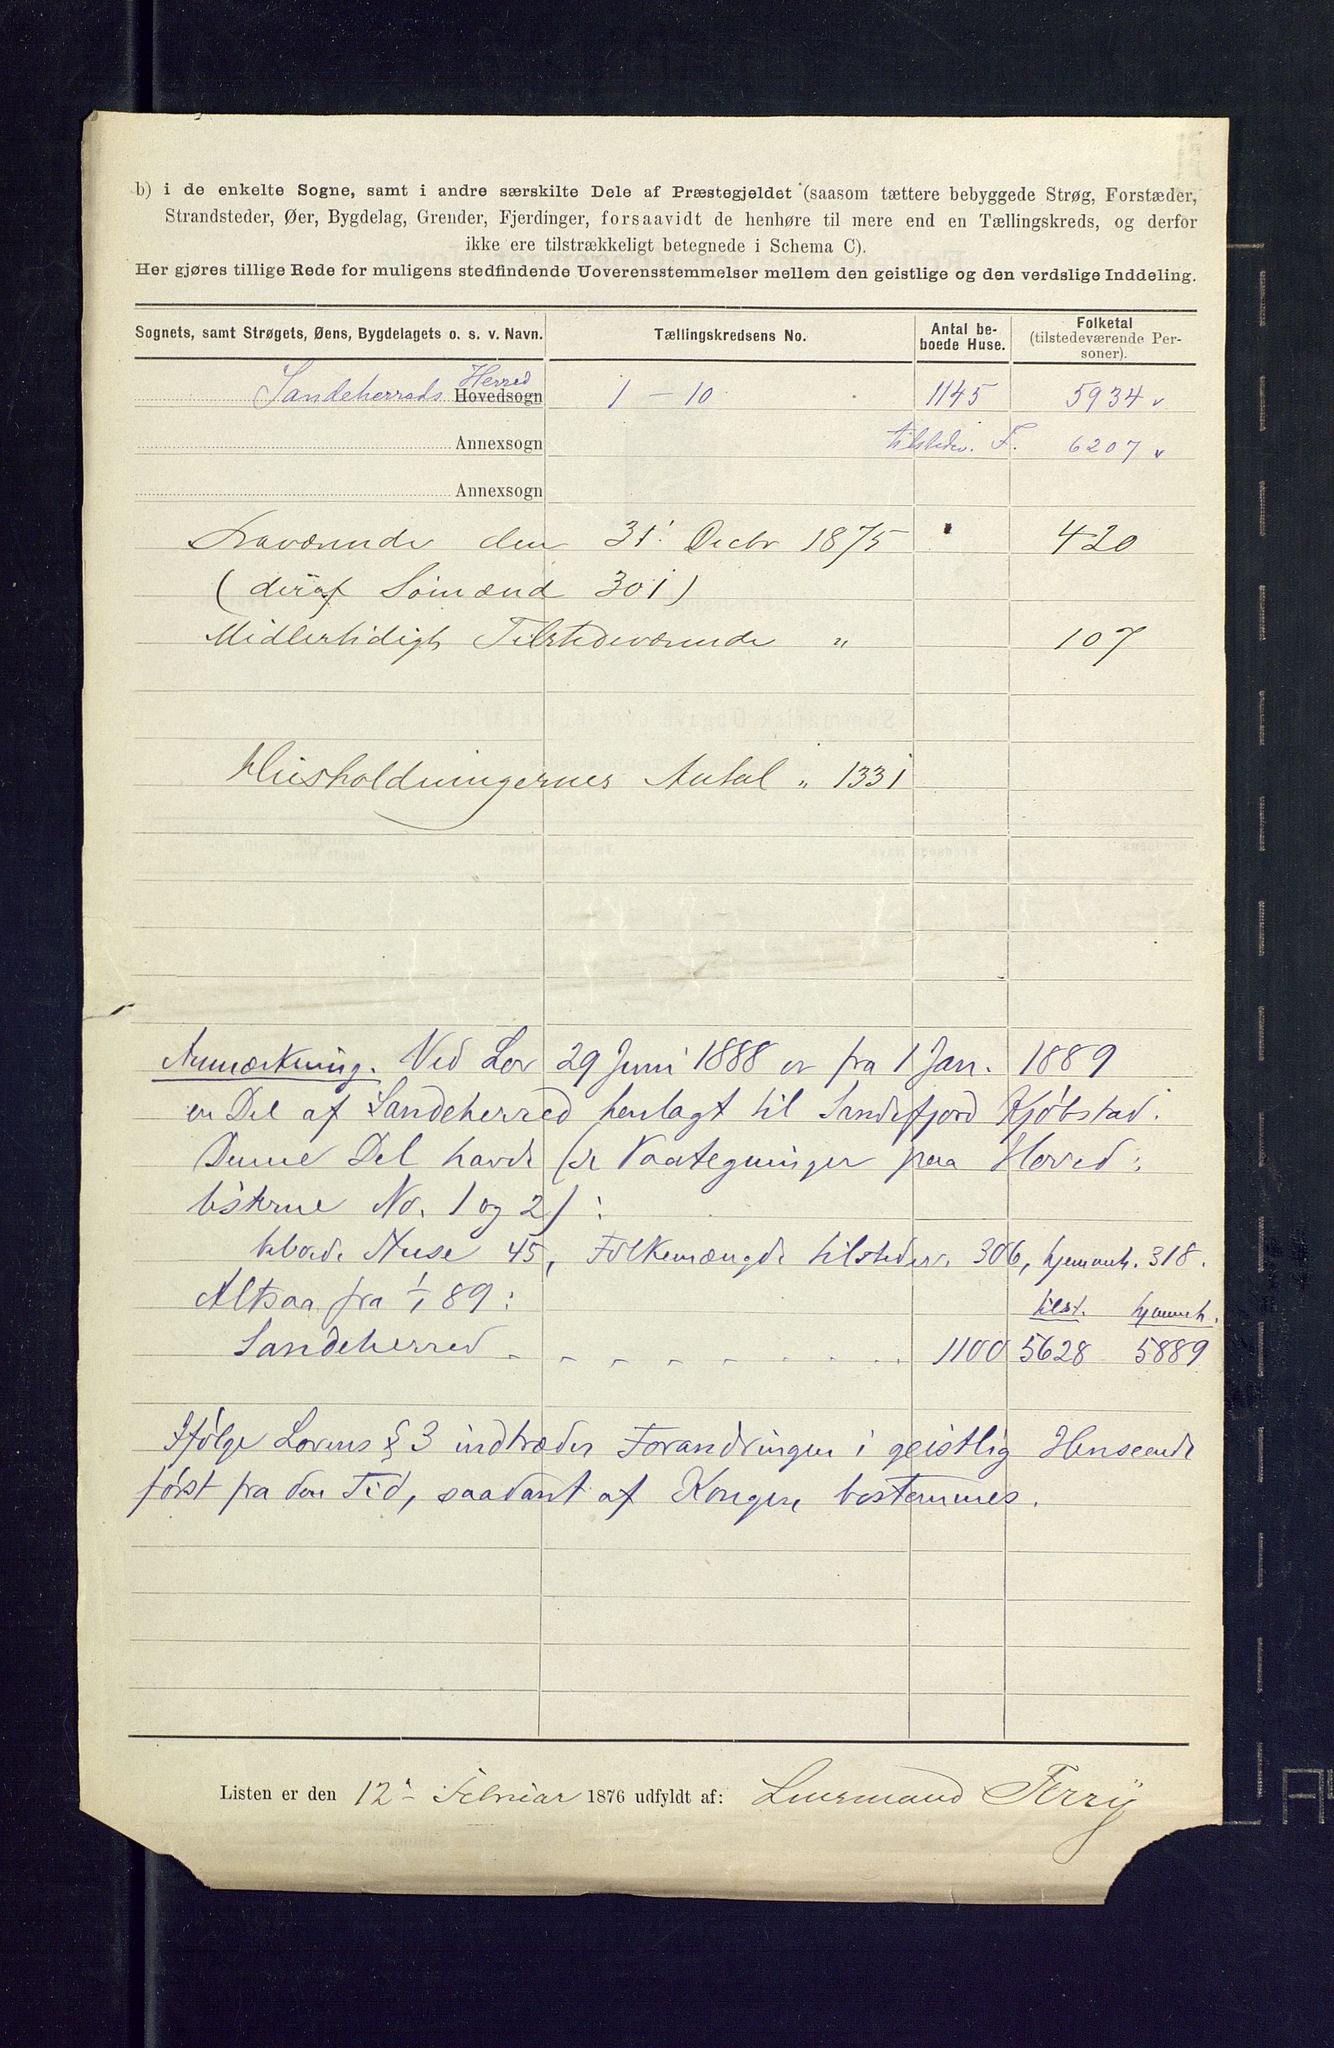 b) i de enkelte Sogne, samt i andre særskilte Dele af Præstegjeldet (saasom tættere bebyggede Strøg, Forstæder,
Strandsteder, Øer, Bygdelag, Grender, Fjerdinger, forsaavidt de henhøre til mere end en Tællingskreds, og derfor
ikke ere tilstrækkeligt betegnede i Schema C).
Her gjøres tillige Rede for muligens stedfindende Uoverensstemmelser mellem den geistlige og den verdslige Inddeling.
Sognets, samt Strøgets, Øens, Bygdelagets o. s. v. Navn. Tællingskredsens No. Antal beboede Huse. Folketal (tilstedeværende Personer).
Sandeherreds Hovedsogn Herred 1 - 10 1145 5934 v
Annexsogn tilstedev. F. 6207 v
Annexsogn
Fraværende den 31' Decbr 1875 420
(deraf Sömænd 301)
Midlertidigt Tilstedeværende " 107
Husholdningernes Antal " 1331
Anmærkning. Ved Lov 29 Juni 1888 er fra 1 Jan. 1889
en Del af Sandeherred henlagt til Sandefjord Kjøbstad.
Denne Del havde (se Paategninger paa Hoved-
listerne No. 1 og 2):
beboede Huse 45, Folkemængde tilstedev. 306, hjemmeh. 318.
Altsaa fra 1/1 89: tilst. hjemmeh.
Sandeherred - - - - - - - - 1100 5628 5889
Ifølge Lovens § 3 indtræder Forandringen i geistlig Henseende
først fra den Tid, saadant af Kongen bestemmes.
Listen er den 12' Februar 1876 udfyldt af: Lensmand